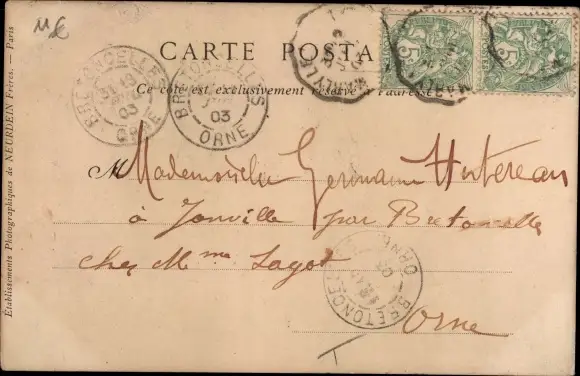 CARTE POSTA
Ce côté est exclusivement réservé à l'adresse
Mademoiselle Germaine
à Jonville par Bretoncelles
chez Mme Lagot
Orne
BRETONCELLES
03
ORNE
BRETONCELLES
03
ORNE
BRETONCELLES
ORNE
5
5
Établissements Photographiques de NEURDEIN Frères. — Paris